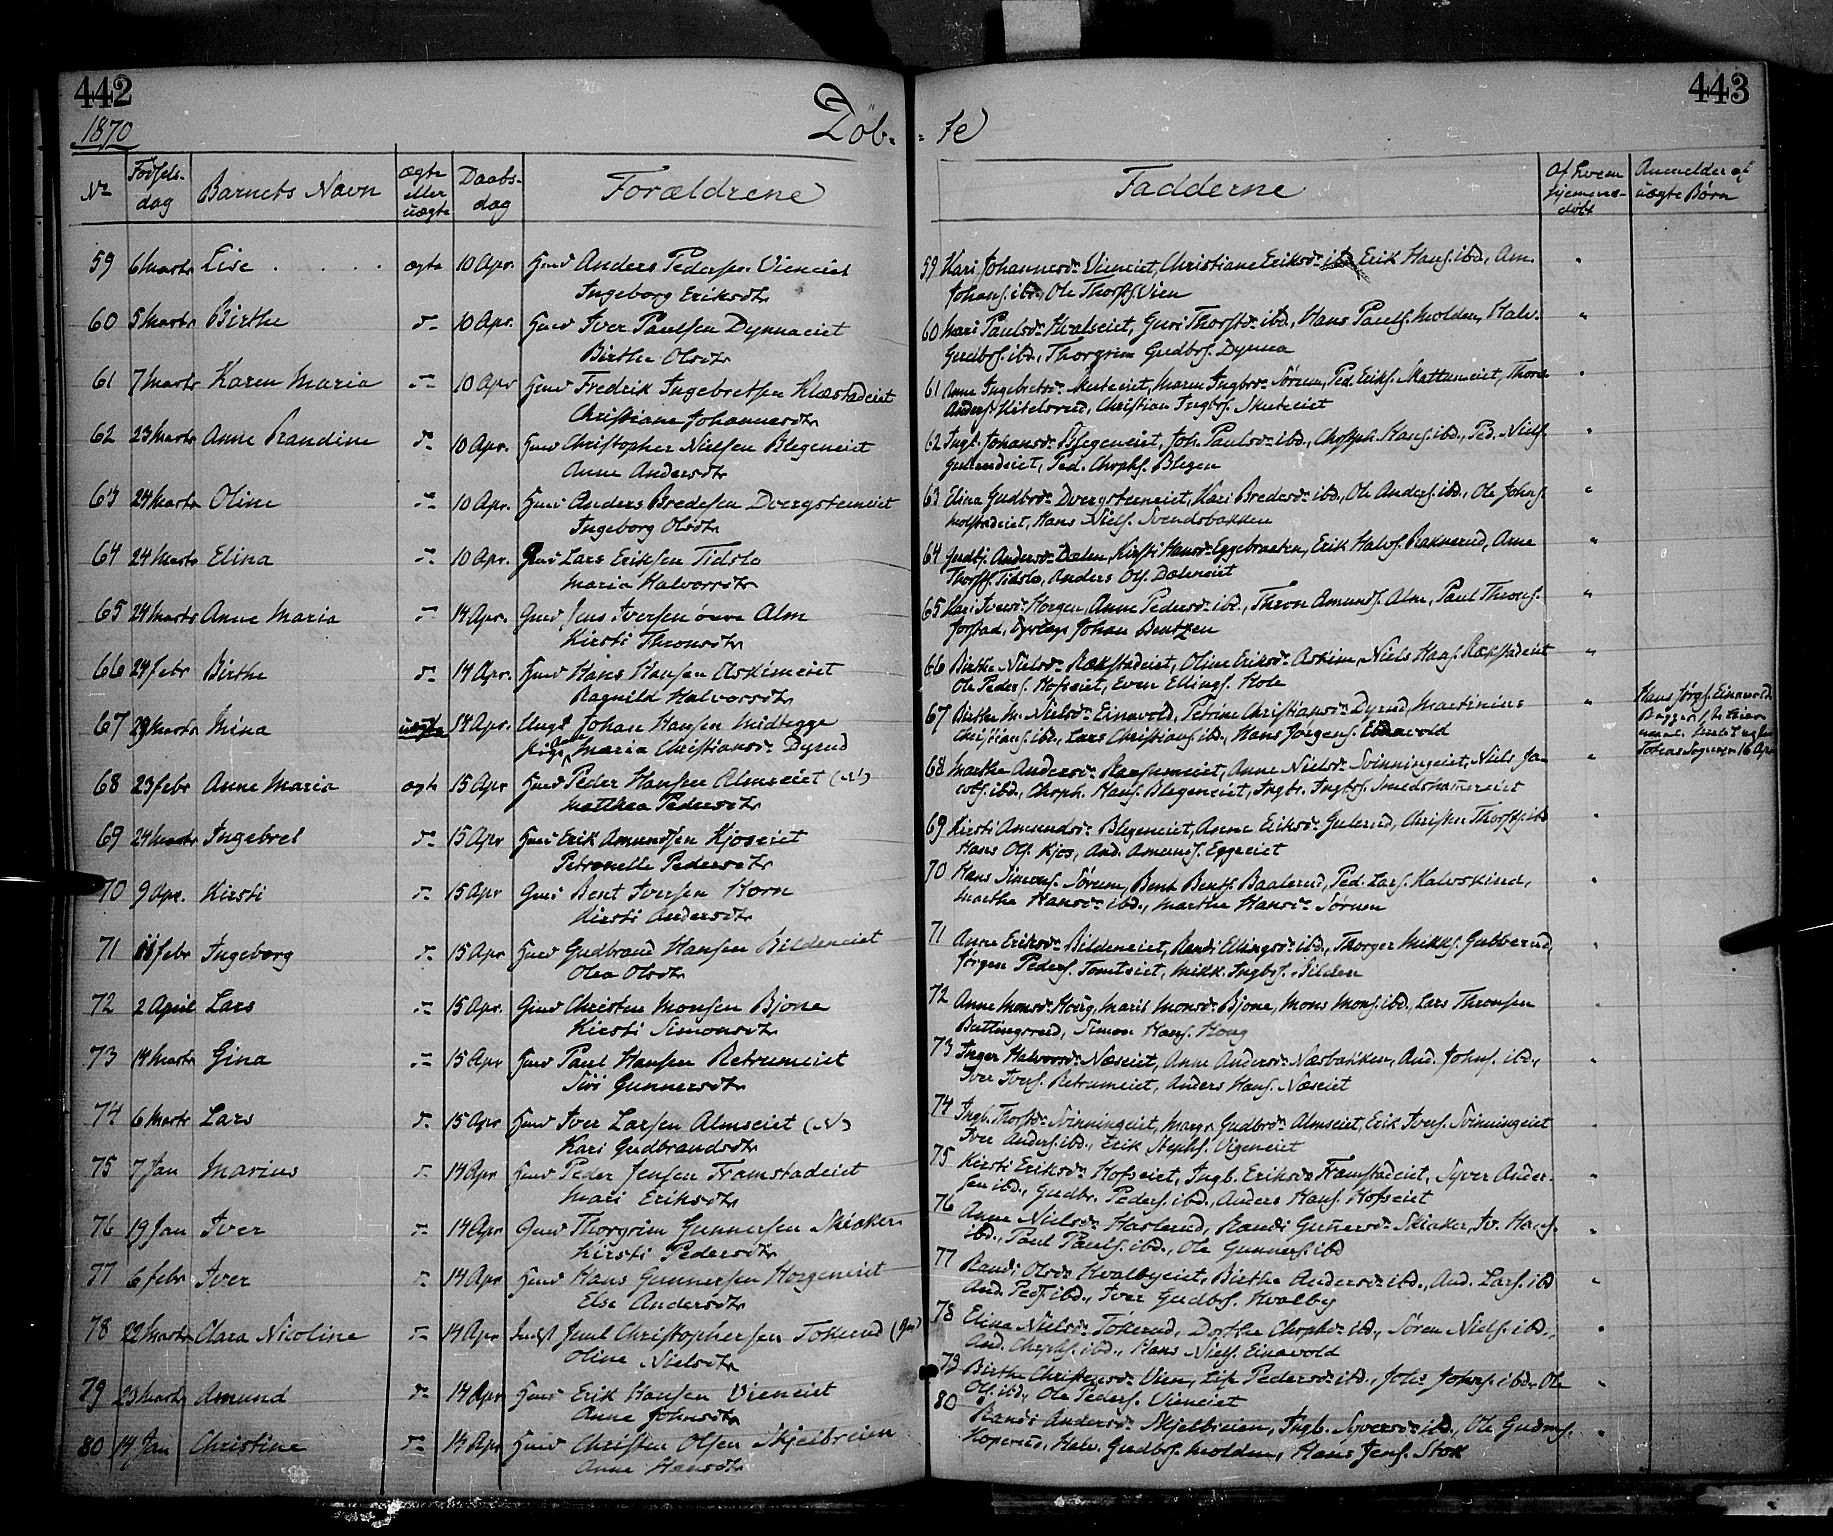 442
1870
Døb-
No
Fødsels-
dag
Barnets Navn
ægte
eller
uægte
Daabs-
dag
Forældrene
59 6 Marts Lise ægte 10 Apr. Huusmd Anders Pedersen Vieneiet
Ingeborg Eriksdtr
60 5 Marts Birthe do 10 Apr. Huusmd Iver Paulsen Dynnaeiet
Birthe Olsdtr
61 7 Marts Karen Maria do 10 Apr Huusmd Fredrik Ingebretsen Klæstadeiet
Christiane Johannesdtr
62 23 Marts Anne Randine do 10 Apr. Huusmd Christopher Nielsen Blegeneiet
Anne Andersdtr
63 24 Marts Oline do 10 Apr. Huusmd Anders Bredesen Dvergsteneiet
Ingeborg Olsdtr
64 24 Marts Elina do 10 Apr. Gmd Lars Eriksen Tidslo
Maria Halvorsdtr
65 24 Marts Anne Maria do 14 Apr. Gmd Jens Iversen øvre Alm
Kirsti Thronsdtr
66 24 febr Birthe do 14 Apr. Huusmd Hans Hansen Askimeiet
Ragnild Halvorsdtr
67 29 Marts Mina uægte 14 Apr. Ungk Johan Hansen Midtegge
Pige Maria Christiansdr Dyrud
68 23 febr Anne Maria ægte 15 Apr Huusmd Peder Hansen Almseiet (N)
Matthea Pedersdtr
69 24 Marts Ingebret do 15 Apr Huusmd Erik Amundsen Kjoseiet
Petronelle Pedersdtr
70 9 Apr. Kirsti do 15 Apr Gmd Bent Iversen Horn
Kirsti Andersdtr
71 11 febr Ingeborg do 15 Apr Huusmd Gudbrand Hansen Bildeneiet
Olea Olsdtr
72 2 April Lars do 15 Apr. Gmd Christen Monsen Bjone
Kirsti Simonsdtr
73 14 Marts Gina do 15 Apr Huusmd Paul Hansen Retrumeiet
Siri Gunnersdtr
74 6 Marts Lars do 15 Apr Huusmd Iver Larsen Almseiet (N)
Kari Gudbrandsdtr
75 7 Jan Marius do 14 Apr Huusmd Peder Jensen Framstadeiet
Mari Eriksdtr
76 19 Jan Iver do 14 Apr Gmd Thorgrim Gunnersen Skiaker
Kirsti Pedersdtr
77 6 febr Iver do 14 Apr Huusmd Hans Gunnersen Horgeneiet
Else Andersdtr
78 22 Marts Clara Nicoline do 14 Apr Inds Juul Christophersen Tokerud
Oline Nielsdtr
79 23 Marts Amund do 14 Apr Huusmd Erik Hansen Vieneiet
Anne Johnsdtr
80 14 Jan Christine do 14 Apr Huusmd Christen Olsen Skjelbreien
Anne Hansdtr
443
te
Fadderne
Af hvem
hjemme-
døbt
Anmelder af
uægte Børn
59 Kari Johannesdr Vieneiet, Christiane Eriksdr ibd, Erik Hans. ibd., Am.
Johans. ibd, Ole Thorst. Vien
60 Mari Paulsdr Hvalseiet, Guri Thorstdr ibd., Hans Pauls. Molden, Halv.
Gudbs. ibd., Thorgrim Gudbs. Dynna
61 Anne Ingebretsdr Skuteeiet, Maren Ingbrdr Sørum, Ped. Eriks. Mattumeiet, Thore
Anders. Hitelsrud, Christian Ingbs. Skuteeiet
62 Ingb. Johansdr Blegeneiet, Joh. Paulsdr ibd., Chrstph. Hans. ibd., Ped. Niels.
Gulerudeiet, Ped. Chrphs. Blegen
63 Elina Gudbrdr Dvergsteneiet, Kari Bredesdr ibd., Ole Anders. ibd., Ole Johns.
Molstadeiet, Hans Niels. Svendsbakken
64 Gudbj. Andersdr Dælen, Kirsti Hansdr Eggebraaten, Erik Halvs. Raknerud, Arne
Thorsts. Tidslo, Anders Ols. Dæleneiet
65 Kari Iversdr Horgen, Anne Pedersdr ibd., Thron Amunds. Alm, Paul Throns.
Jorstad, Johan Bentzen
66 Birthe Nielsdr Rækstadeiet, Oline Eriksdr Askim, Niels Hans. Rækstadeiet
Ole Peders. Hofseiet, Even Ellings. Hole
67 Birthe M. Nielsdr Einavold, Petrine Christiansdr Dyrud, Martinius
Christians. ibd., Lars Christians. ibd., Hans Jørgens. Einavold
Hans Jørgs. Einavold
68 Marthe Andersdr Raasumeiet, Anne Nielsdr Svinningeiet, Niels Ja-
cobs. ibd., Chrph. Hans. Blegeneiet, Ingbr. Ingbs. Smedshammereiet
69 Kirsti Amundsdr Blegeneiet, Anne Eriksdr Gulerud, Christen Thorsts. ibd
Hans Ols. Kjos, And. Amunds. Eggeeiet
70 Hans Simons. Sørum, Bent Bents. Baalerud, Ped. Lars. Halvskind,
Marthe Hansdr ibd., Marthe Hansdr Sørum
71 Anne Eriksdr Bildeneiet, Randi Ellingsdr ibd., Thorger Mikks. Gubberud,
Jørgen Peders. Tomteiet, Mikk. Ingbs. Bilden
72 Anne Monsdr Houg, Marit Monsdr Bjone, Mons Mons. ibd., Lars Thronsen
Buttingsrud, Simon Hans. Houg
73 Inger Halvorsdr Næseiet, Anne Andersdr Næsbakken, And. Johns. ibd.,
Iver Ivers. Retrumeiet, Anders Hans. Næseiet
74 Ingb. Thorstdr Svinningeiet, Margr. Gudbrdr Almseiet, Erik Ivers. Svinningeiet
Iver Anders. ibd., Erik Stephs. Vigeneiet
75 Kirsti Eriksdr Hofseiet, Ingb. Eriksdr Framstadeiet, Syver Ander-
sen ibd., Gudbr. Peders. ibd., Anders Hans. Hofseiet
76 Anne Nielsdr Haslerud, Randi Gunersdr Skiaker, Iv. Hans.
ibd., Paul Pauls. ibd., Ole Gunners. ibd
77 Randi Olsdr Hvalbyeiet, Birthe Andersdr ibd., And. Lars. ibd
And. Peds. ibd., Iver Gudbs. Hvalby
78 Elina Nielsdr Tokerud, Dorthe Chrphdr ibd., Søren Niels. ibd.,
And. Chrphs. ibd., Hans Niels. Einavold
79 Birthe Christensdr Vien, Lise Pedersdr ibd., Johs Johns. ibd., Ole
Ols. ibd., Ole Peders. Vieneiet
80 Randi Andersdr Skjelbreien, Ingb. Syversdr ibd., Ole Gudms.
Koperud, Halv. Gudbs. Molden, Hans Jens. Stok